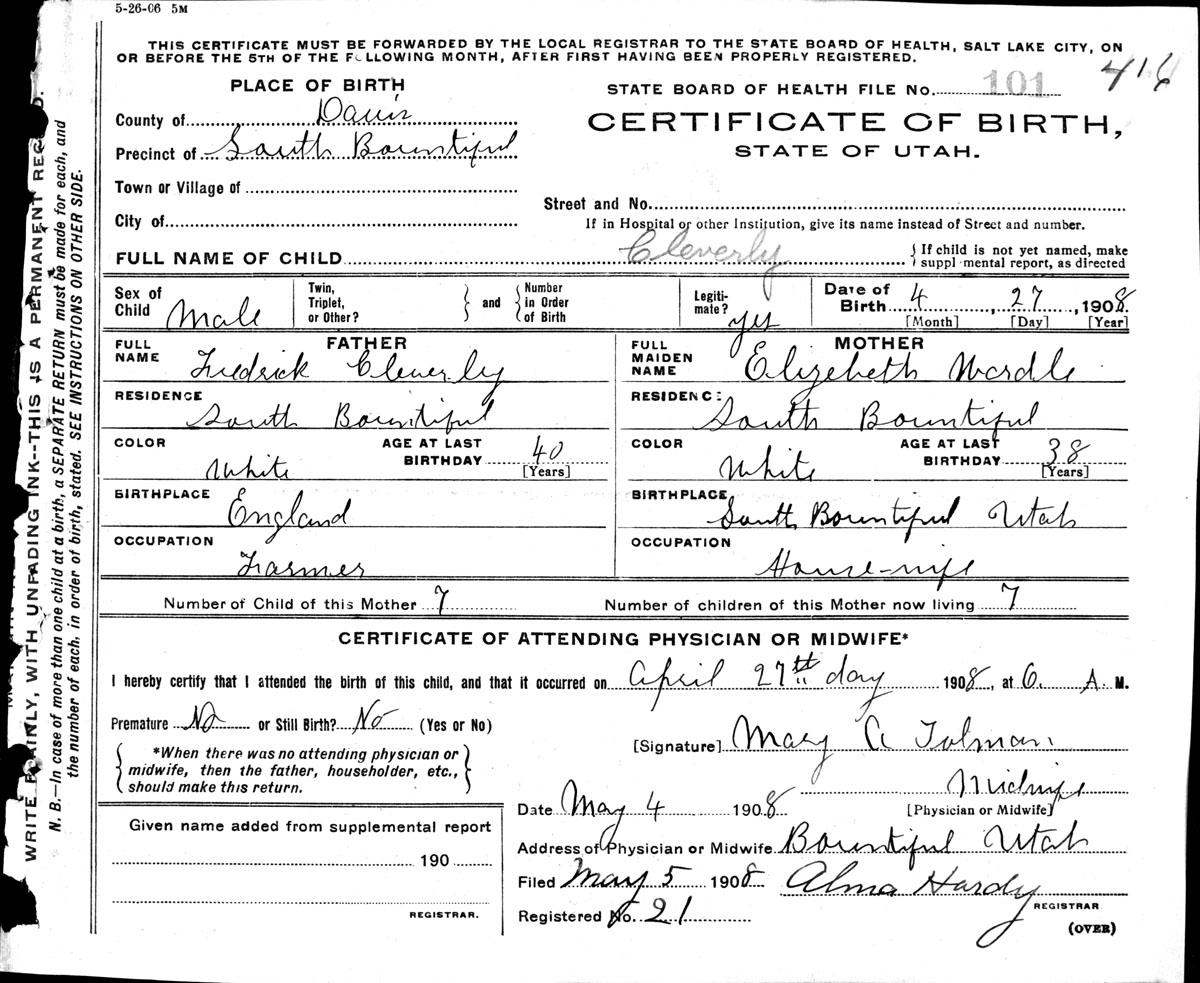 5-26-06 5M
THIS CERTIFICATE MUST BE FORWARDED BY THE LOCAL REGISTRAR TO THE STATE BOARD OF HEALTH, SALT LAKE CITY, ON
OR BEFORE THE 5TH OF THE FOLLOWING MONTH, AFTER FIRST HAVING BEEN PROPERLY REGISTERED.
416
PLACE OF BIRTH
STATE BOARD OF HEALTH FILE No. 101
County of Davis
CERTIFICATE OF BIRTH,
Precinct of South Bountiful
STATE OF UTAH.
Town or Village of
Street and No.
City of
If in Hospital or other Institution, give its name instead of Street and number.
FULL NAME OF CHILD Cleverly
{If child is not yet named, make
suppl mental report, as directed
Sex of Child Male
Twin, Triplet, or Other?
and
Number in Order of Birth
Legiti-mate? yes
Date of Birth 4, 27, 1908.
[Month] [Day] [Year]
FATHER
MOTHER
FULL NAME Fredrick Cleverly
FULL MAIDEN NAME Elizebeth Wardle
RESIDENCE South Bountiful
RESIDENCE South Bountiful
COLOR White AGE AT LAST BIRTHDAY 40 [Years]
COLOR White AGE AT LAST BIRTHDAY 38 [Years]
BIRTHPLACE England
BIRTHPLACE South Bountiful Utah
OCCUPATION Farmer
OCCUPATION House-wife
Number of Child of this Mother 7
Number of children of this Mother now living 7
CERTIFICATE OF ATTENDING PHYSICIAN OR MIDWIFE*
I hereby certify that I attended the birth of this child, and that it occurred on April 27th day 1908, at 6. A. M.
Premature No or Still Birth? No (Yes or No)
*When there was no attending physician or
midwife, then the father, householder, etc.,
should make this return.
[Signature] Mary A Tolman
Midwife
[Physician or Midwife]
Date May 4 1908
Given name added from supplemental report
190
REGISTRAR.
Address of Physician or Midwife Bountiful Utah
Filed May 5 1908 Alma Hardy
REGISTRAR
Registered No. 21
(OVER)
WRITE PLAINLY, WITH UNFADING INK--THIS IS A PERMANENT REC D.
N. B.—In case of more than one child at a birth, a SEPARATE RETURN must be made for each, and
the number of each. in order of birth, stated. SEE INSTRUCTIONS ON OTHER SIDE.